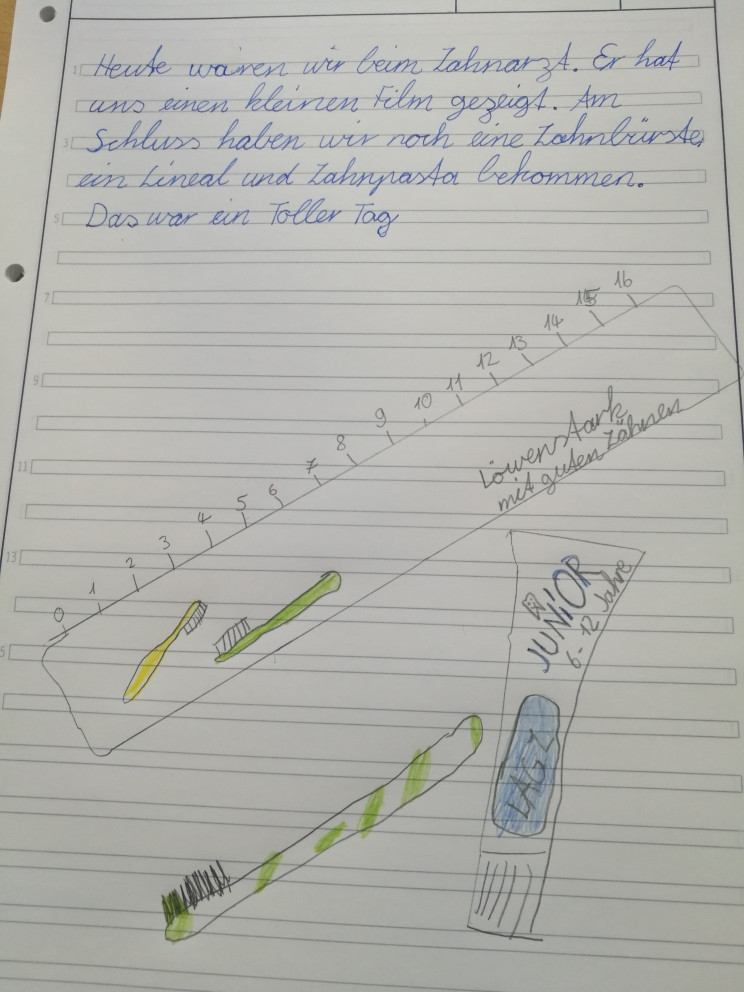 Heute waren wir beim Zahnarzt. Er hat
uns einen kleinen Film gezeigt. Am
Schluss haben wir noch eine Zahnbürste,
ein Lineal und Zahnpasta bekommen.
Das war ein Toller Tag
0 1 2 3 4 5 6 7 8 9 10 11 12 13 14 15 16
Löwenstark
mit guten Zähnen
JUNiOR
6-12 Jahre